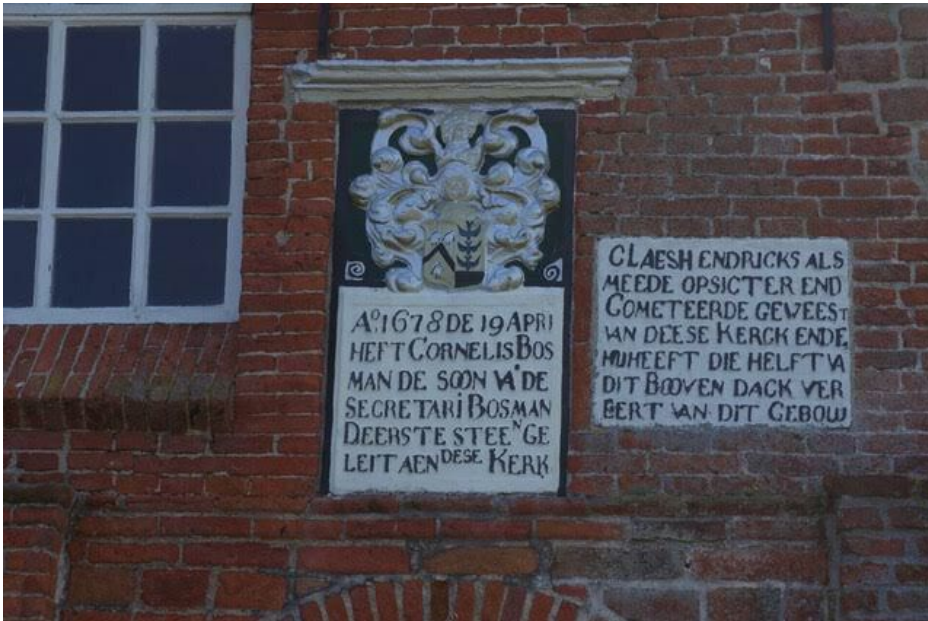 Aº. 1678 DE 19 APRI
HEFT CORNELIS BOS
MAN DE SOON VA DE
SECRETARI BOSMAN
DEERSTE STEEN GE
LEIT AEN DESE KERK
CLAESH ENDRICKS ALS
MEEDE OPSICTER END
COMETEERDE GEVEEST
VAN DEESE KERCK ENDE
HEEFT DIE HELFT VA
DIT BOOVEN DACK VER
EERT VAN DIT GEBOW